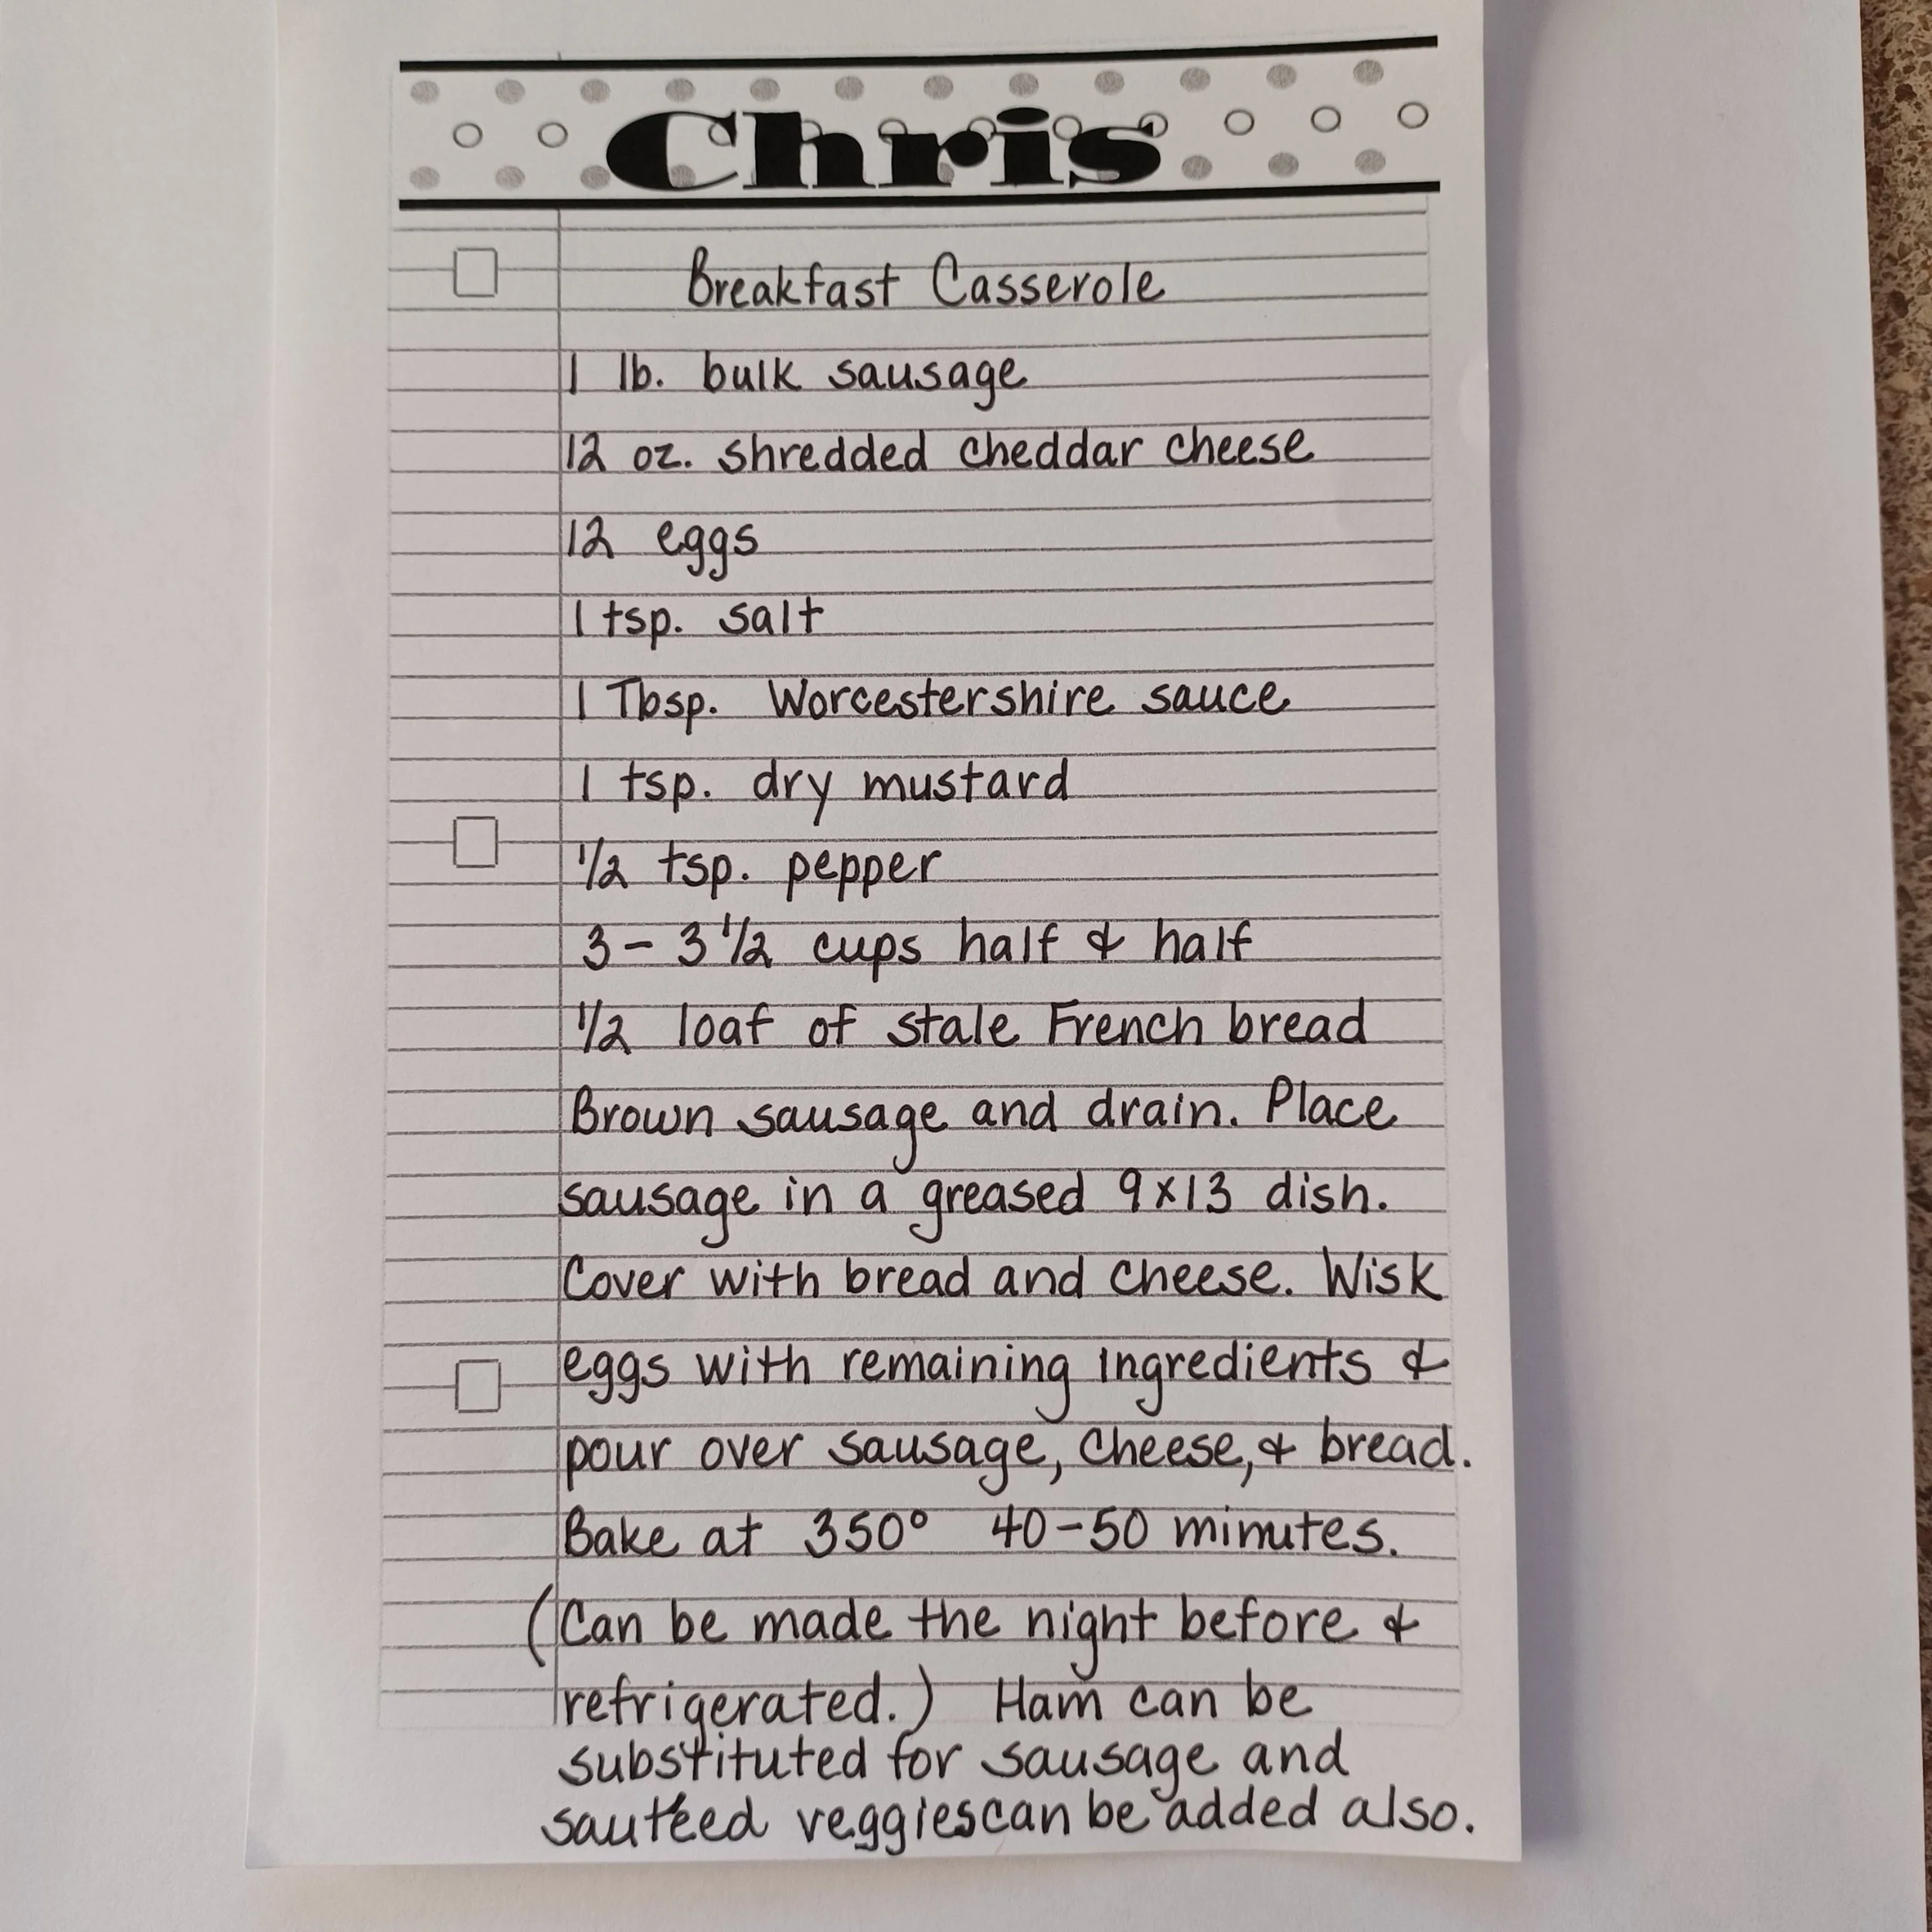 Chris
Breakfast Casserole
1 lb. bulk sausage
12 oz. shredded cheddar cheese
12 eggs
1 tsp. salt
1 Tbsp. Worcestershire sauce
1 tsp. dry mustard
1/2 tsp. pepper
3 - 3 1/2 cups half & half
1/2 loaf of stale French bread
Brown sausage and drain. Place
sausage in a greased 9x13 dish.
Cover with bread and cheese. Wisk
eggs with remaining ingredients &
pour over sausage, cheese, & bread.
Bake at 350° 40-50 minutes.
(Can be made the night before &
refrigerated.) Ham can be
substituted for sausage and
sautéed veggies can be added also.